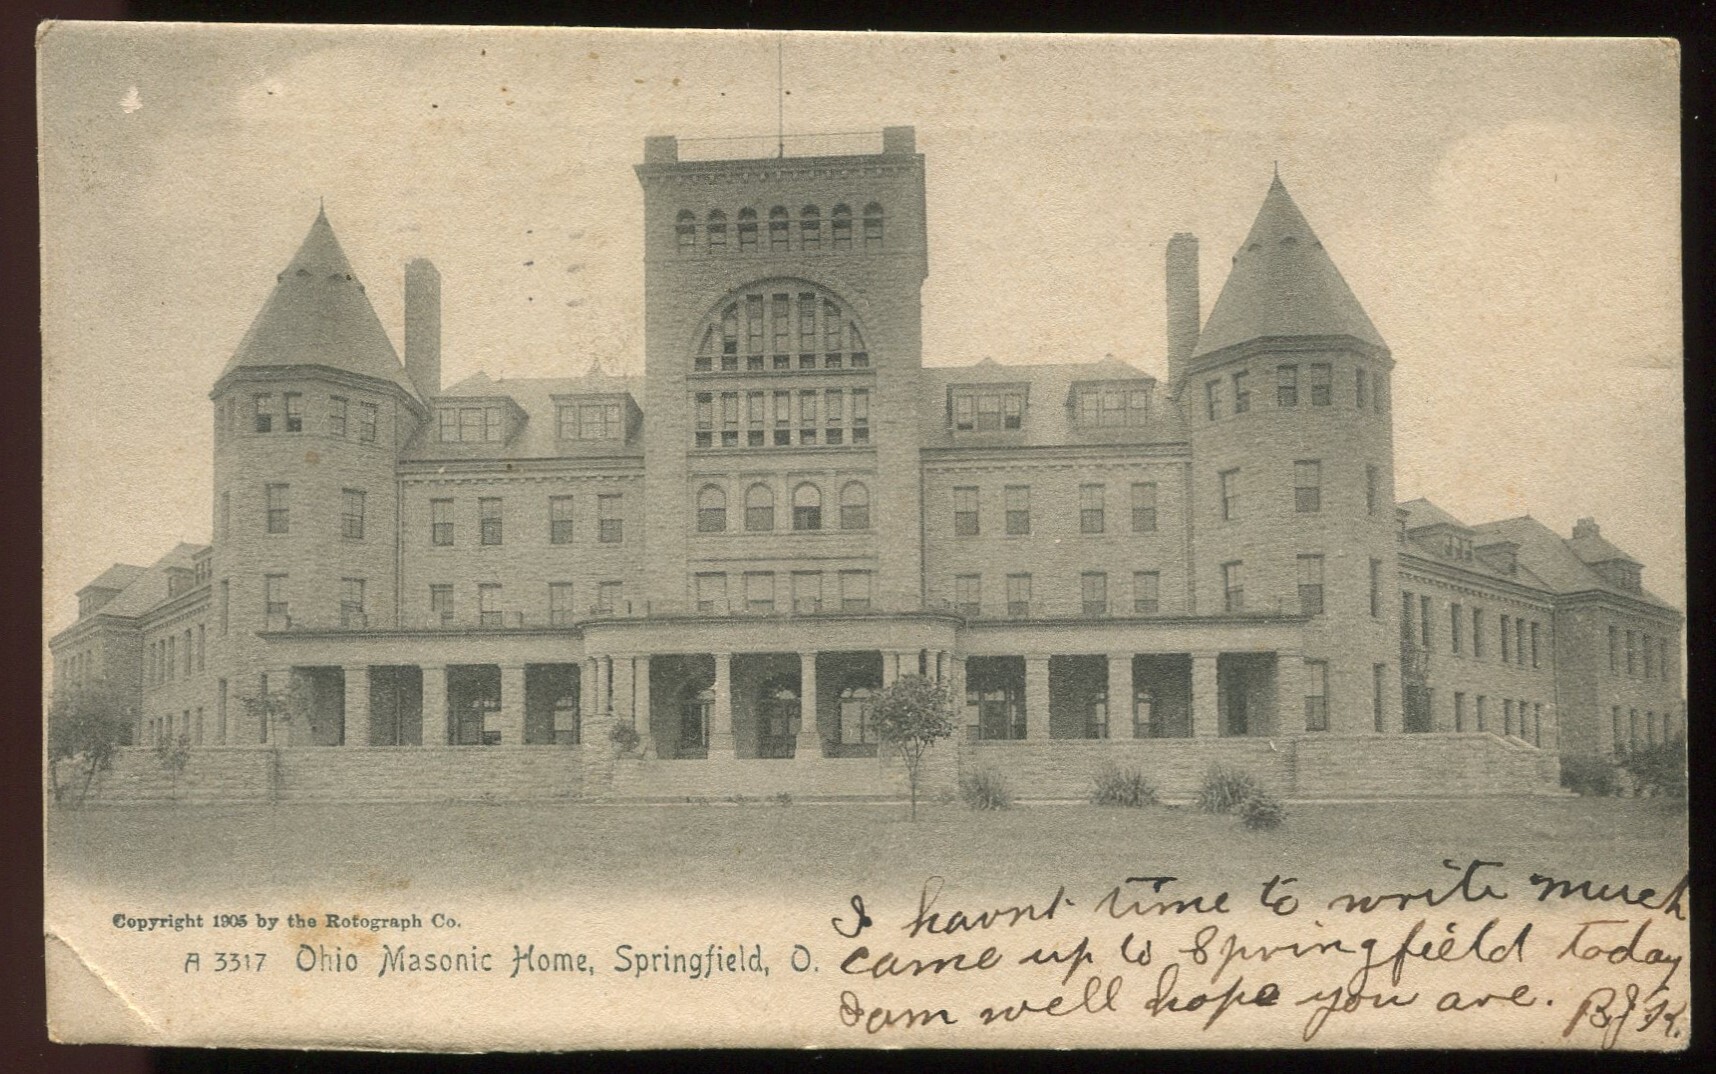 Copyright 1905 by the Rotograph Co.
A 3317 Ohio Masonic Home, Springfield, O.
I havnt time to write much
came up to Springfield today
I am well hope you are. B.J.K.